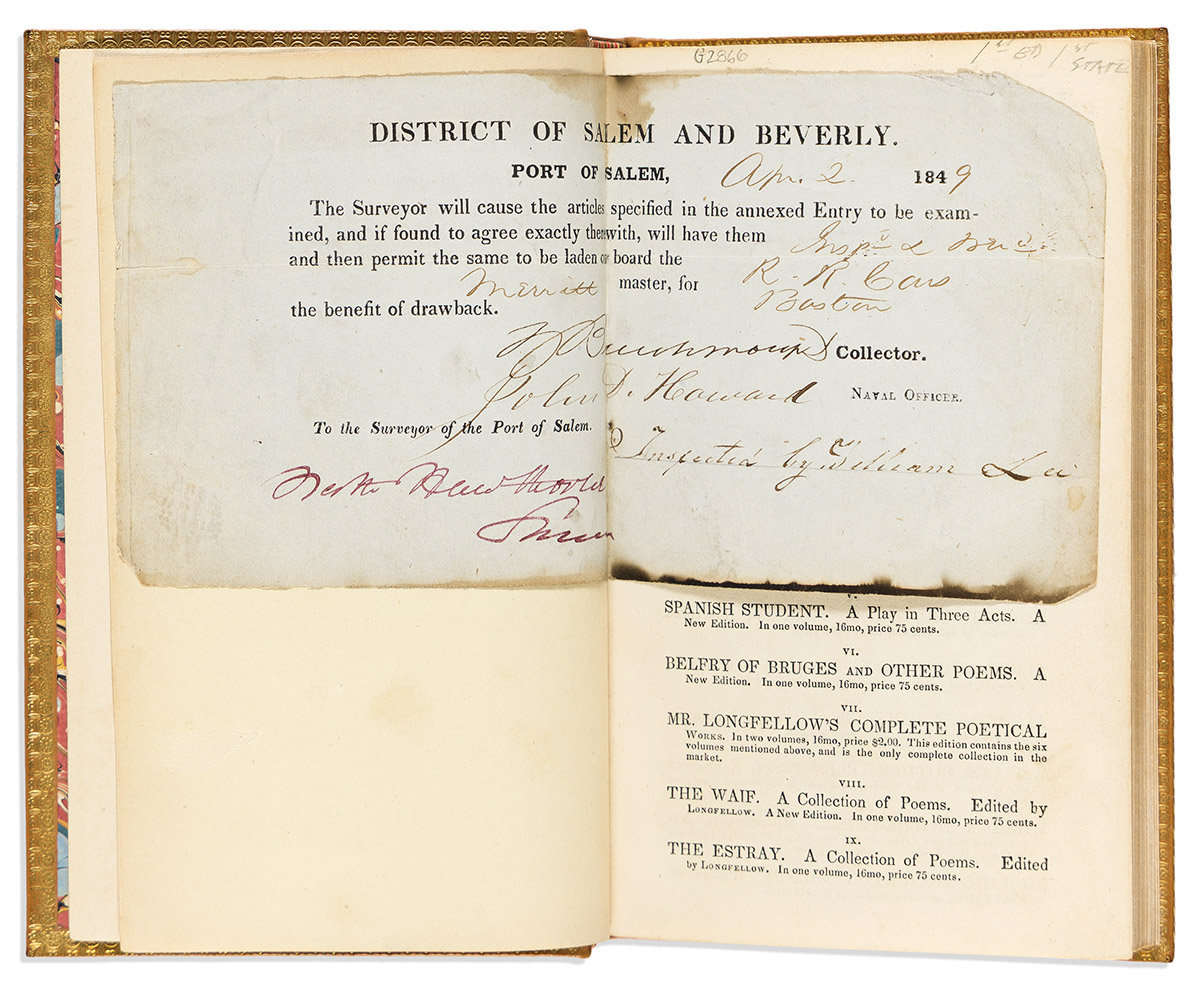 G2866
1st ED 1st
STATE
DISTRICT OF SALEM AND BEVERLY.
PORT OF SALEM, Apr. 2. 1849
The Surveyor will cause the articles specified in the annexed Entry to be exam-
ined, and if found to agree exactly therewith, will have them Insp.d &
and then permit the same to be laden or board the R. R. Cars
Merritt master, for Boston
the benefit of drawback.
Collector.
John D. Howard NAVAL OFFICER.
To the Surveyor of the Port of Salem.
Inspected by William Lee
Nath Hawthorne
Surv
V.
SPANISH STUDENT. A Play in Three Acts. A
New Edition. In one volume, 16mo, price 75 cents.
VI.
BELFRY OF BRUGES AND OTHER POEMS. A
New Edition. In one volume, 16mo, price 75 cents.
VII.
MR. LONGFELLOW'S COMPLETE POETICAL
WORKS. In two volumes, 16mo, price $2.00. This edition contains the six
volumes mentioned above, and is the only complete collection in the
market.
VIII.
THE WAIF. A Collection of Poems. Edited by
LONGFELLOW. A New Edition. In one volume, 16mo, price 75 cents.
IX.
THE ESTRAY. A Collection of Poems. Edited
by LONGFELLOW. In one volume, 16mo, price 75 cents.